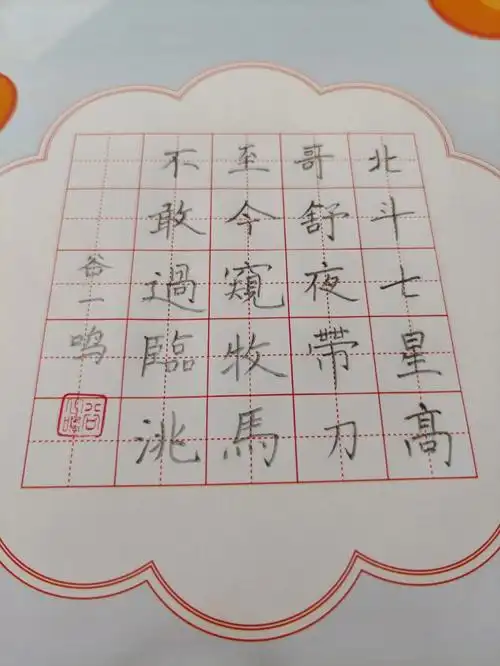 北斗七星高
哥舒夜带刀
至今窺牧馬
不敢過臨洮
谷一鸣